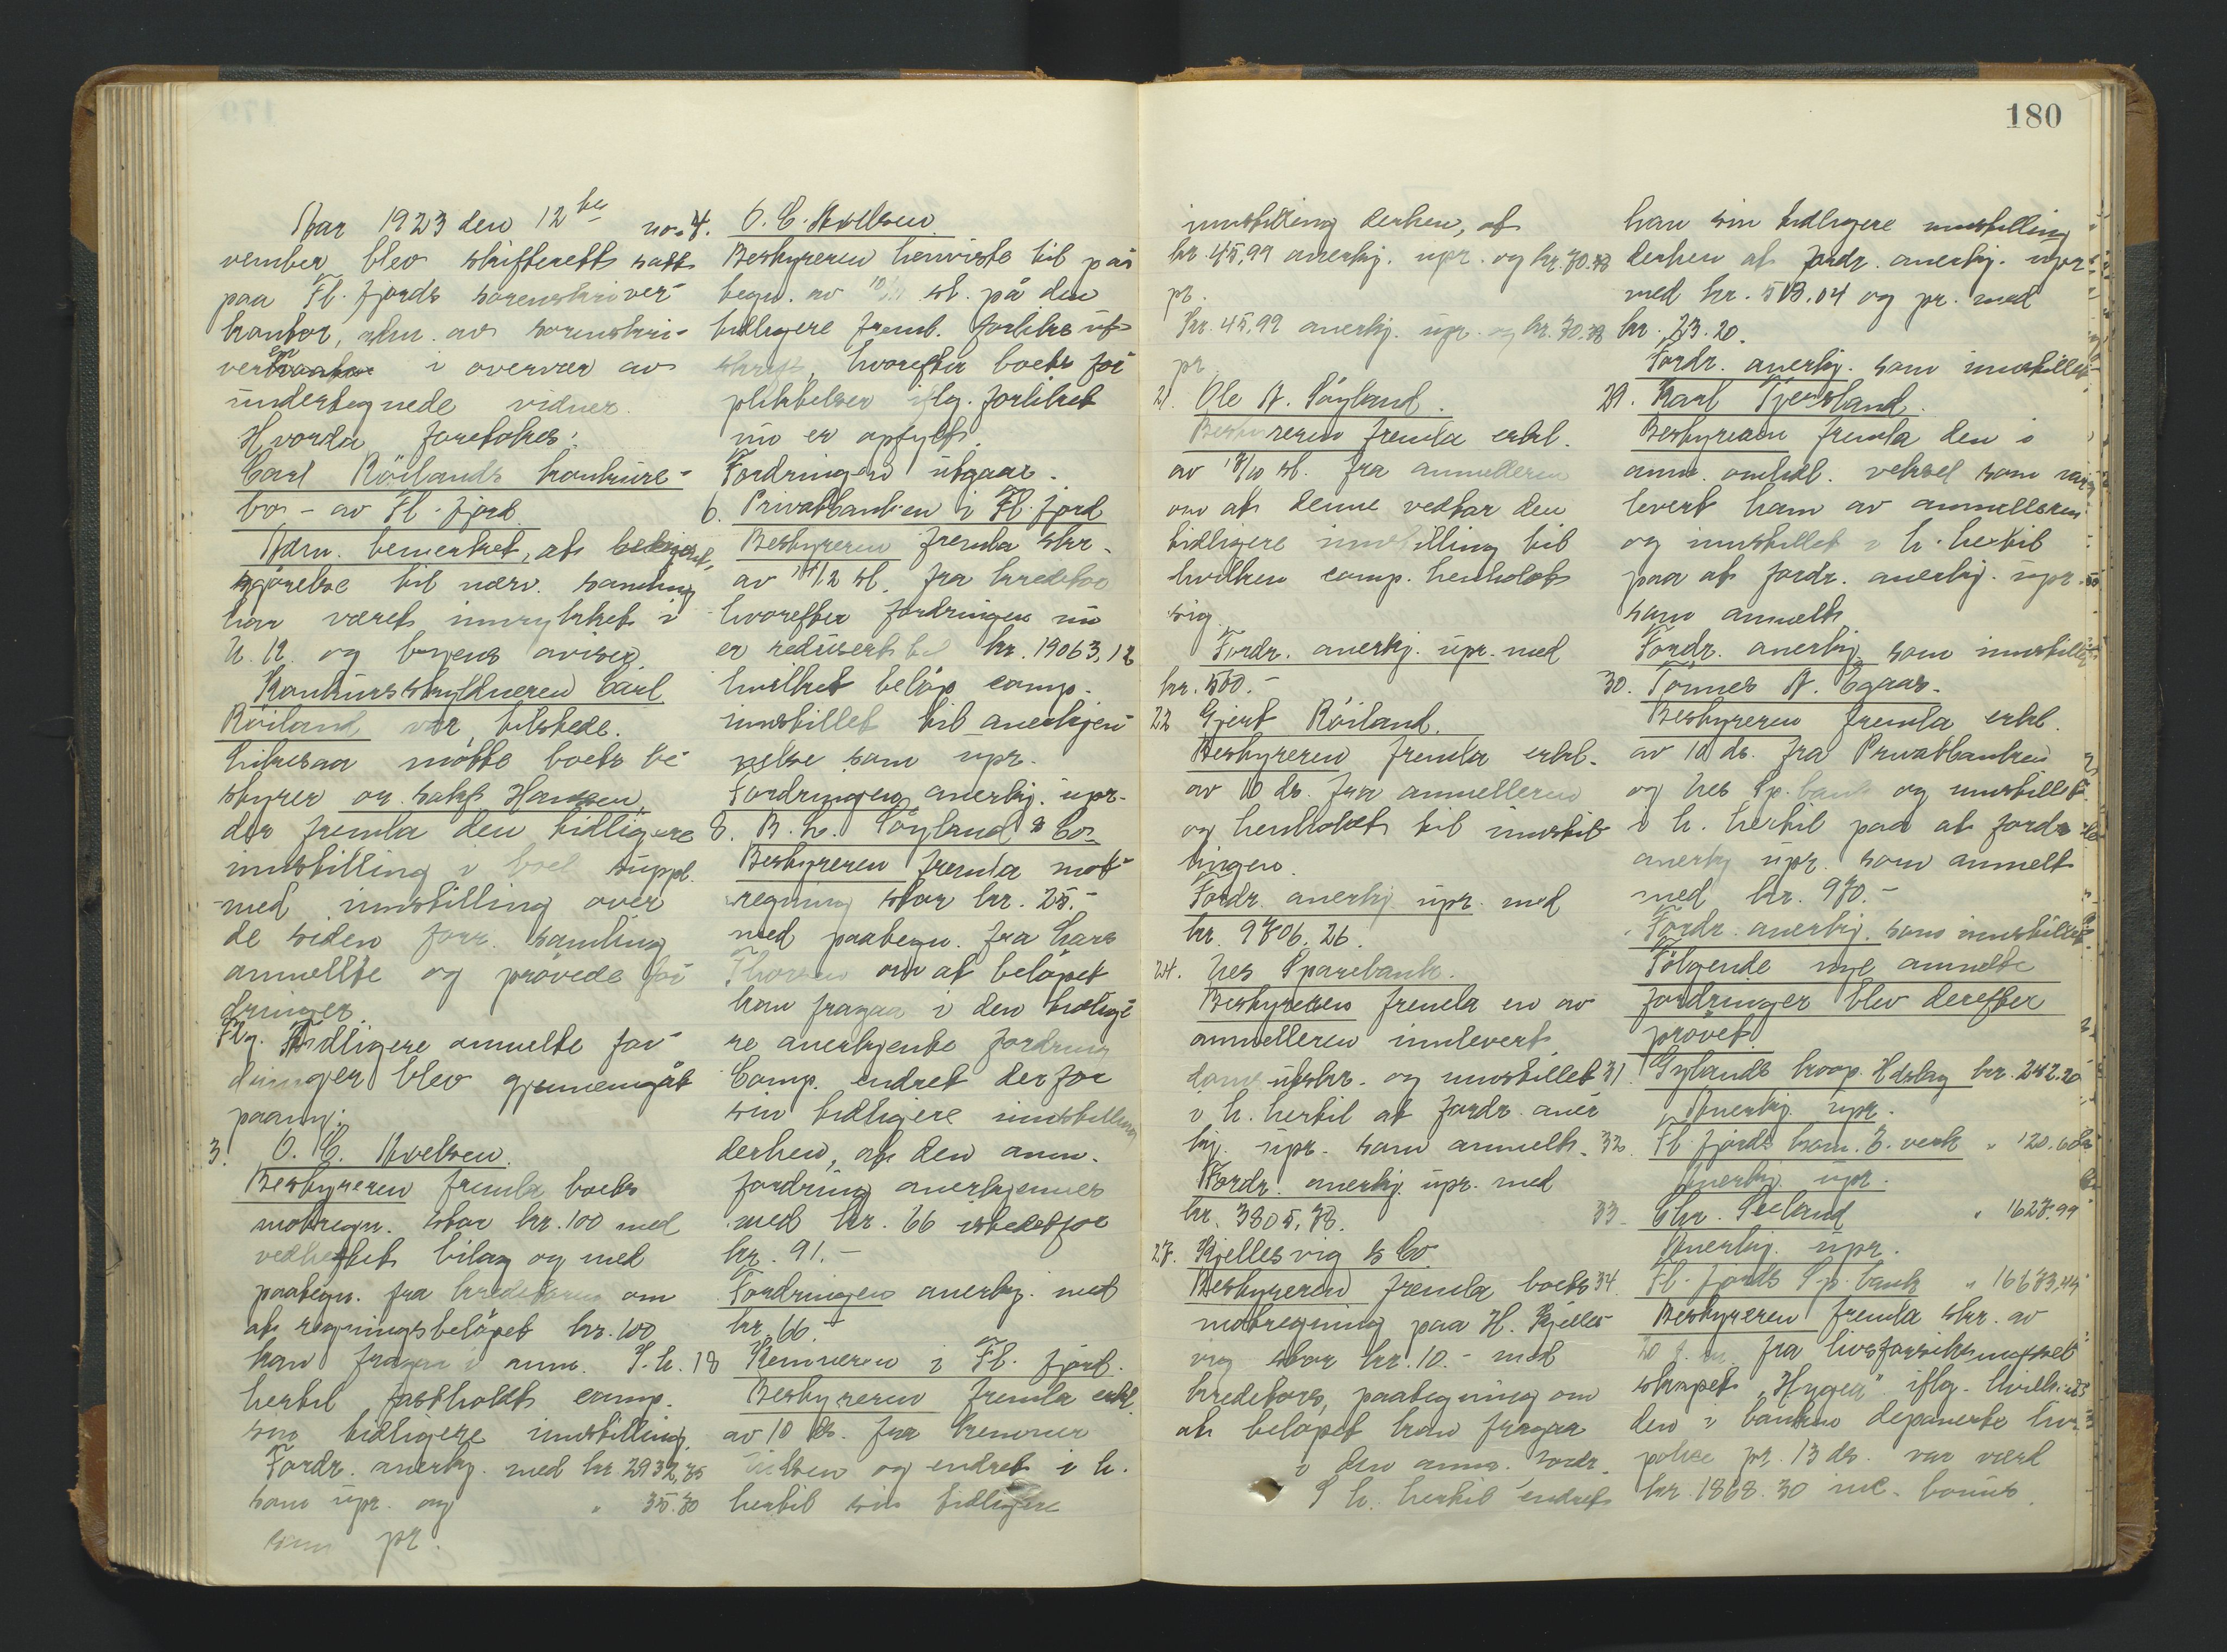 180
Aar 1923 den 12te no-
vember blev skifterett satt
paa Fl. fjords sorenskriver-
kontor, adm. av sorenskri-
veren i overvær av
undertegnede vidner.
Hvorda foretokes:
Carl Röilands konkurs-
bo - av Fl. fjord.
Adm. bemerket, at bekjent-
gjörelse til nærv. samling
har været innrykket i
N. K. og byens aviser.
Konkursskyldneren Carl
Röiland var tilstede.
Likesaa mötte boets be-
styrer or. sakf. Hanssen,
der fremla den tidligere
innstilling i boet suppl.
med innstilling over
de siden forr. samling
anmeldte og prövede for-
dringer.
Flg. tidligere anmelte for-
dringer blev gjennemgåt
paany:
3. O. C. Axelsen.
Bestyreren fremla boets
motregn. stor kr. 100 med
vedheftet bilag og med
paategn. fra kreditoren om
at regningsbelöpet kr. 100
kan fragaa i anm. I h.
hertil fastholdt comp.
sin tidligere innstilling.
Fordr. anerkj. med kr. 2932,75
som upr. og " 35.30
som pr.
4. O. C. Axelsen.
Bestyreren henviste til på-
tegn. av sl. på den
tidligere freml. forliksut-
skrift, hvorefter boets for-
pliktelser iflg. forliket
nu er opfylt.
Fordringen utgaar.
6. Privatbanken i Fl. fjord
Bestyreren fremla skr.
av sl. fra kreditor
hvorefter fordringen nu
er redusert til kr. 19063,12
hvilket belöp comp.
innstillet til anerkjen-
nelse som upr.
Fordringen anerkj. upr.
8. B. L. Söyland & Co.
Bestyreren fremla mot-
regning stor kr. 25.-
med paategn. fra Lars
Thorsen om at belöpet
kan fragaa i den tidlige-
re anerkjente fordring
Comp. endret derfor
sin tidligere innstilling
derhen, at den anm.
fordring anerkjennes
med kr. 66 istedetfor
kr. 91.-
Fordringen anerkj. med
kr. 66.-
18 Kemneren i Fl. fjord.
Bestyreren fremla erkl.
av 10 ds. fra kemner
og endret i h.
hertil sin tidligere
innstilling derhen, at
kr. 45,99 anerkj. upr. og kr. 30.
pr.
Kr. 45,99 anerkj. upr. og kr. 30.
pr.
21. Ole A. Söyland.
Bestyreren fremla erkl.
av sl. fra anmelderen
om at denne vedtar den
tidligere innstilling til
hvilken comp. henholdt
sig.
Fordr. anerkj. upr. med
kr. 500.-
22 Gjert Röiland.
Bestyreren fremla erkl.
av 10 ds. fra anmelleren
og henholdt til innstil-
lingen.
Fordr. anerkj. upr. med
kr. 9706,26.
24. Nes Sparebank.
Bestyreren fremla en av
anmelleren innlevert
utskr. og innstillet
i h. hertil at fordr. aner-
kj. upr. som anmelt.
Fordr. anerkj. upr. med
kr. 3805,38.
27. Kjellesvig & Co.
Bestyreren fremla boets
motregning paa H. Kjelles-
vig stor kr. 10.- med
kreditors paategning om
at belöpet kan fragaa
i den anm. fordr.
I h. hertil endret
han sin tidligere innstilling
derhen at fordr. anerkj. upr.
med kr. 513,04 og pr. med
kr. 23.20.
Fordr. anerkj. som innstillet.
29. Karl Tjersland.
Bestyreren fremla den i
anm. omhdl. veksel som var
levert ham av anmelleren
og innstillet i h. hertil
paa at fordr. anerkj. upr.
som anmelt.
Fordr. anerkj. som innstillet
30. Tönnes A. Egaas.
Bestyreren fremla erkl.
av 10 ds. fra Privatbanken
og Nes Sp.bank og innstillet
i h. hertil paa at fordr.
anerkj. upr. som anmelt
med kr. 970.-
Fordr. anerkj. som innstillet.
Fölgende nye anmelte
fordringer blev derefter
prövet.
31. Gylands koop. Hdslag kr. 242.20
Anerkj. upr.
32. Fl. fjords kom. E. verk " 120.60
Anerkj. upr.
33. Chr. Seeland " 1627.99
Anerkj. upr.
34. Fl. fjords Sp. bank " 16673,44
Bestyreren fremla skr. av
fra livsforsikringssel-
skapet "Hygea" iflg. hvilket
den i banken deponerte livs-
police pr. 13 ds. var værd
kr. 1868.30 incl. bonus.